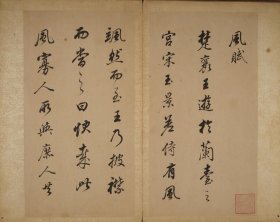 風賦
楚襄王遊於蘭臺之
宮宋玉景差侍有風
颯然而至王乃披襟
而當之曰快哉此
風寡人所與庶人共